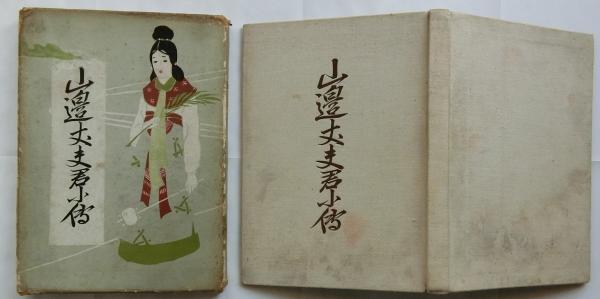 山邉丈夫君小傳
山邉丈夫君小傳